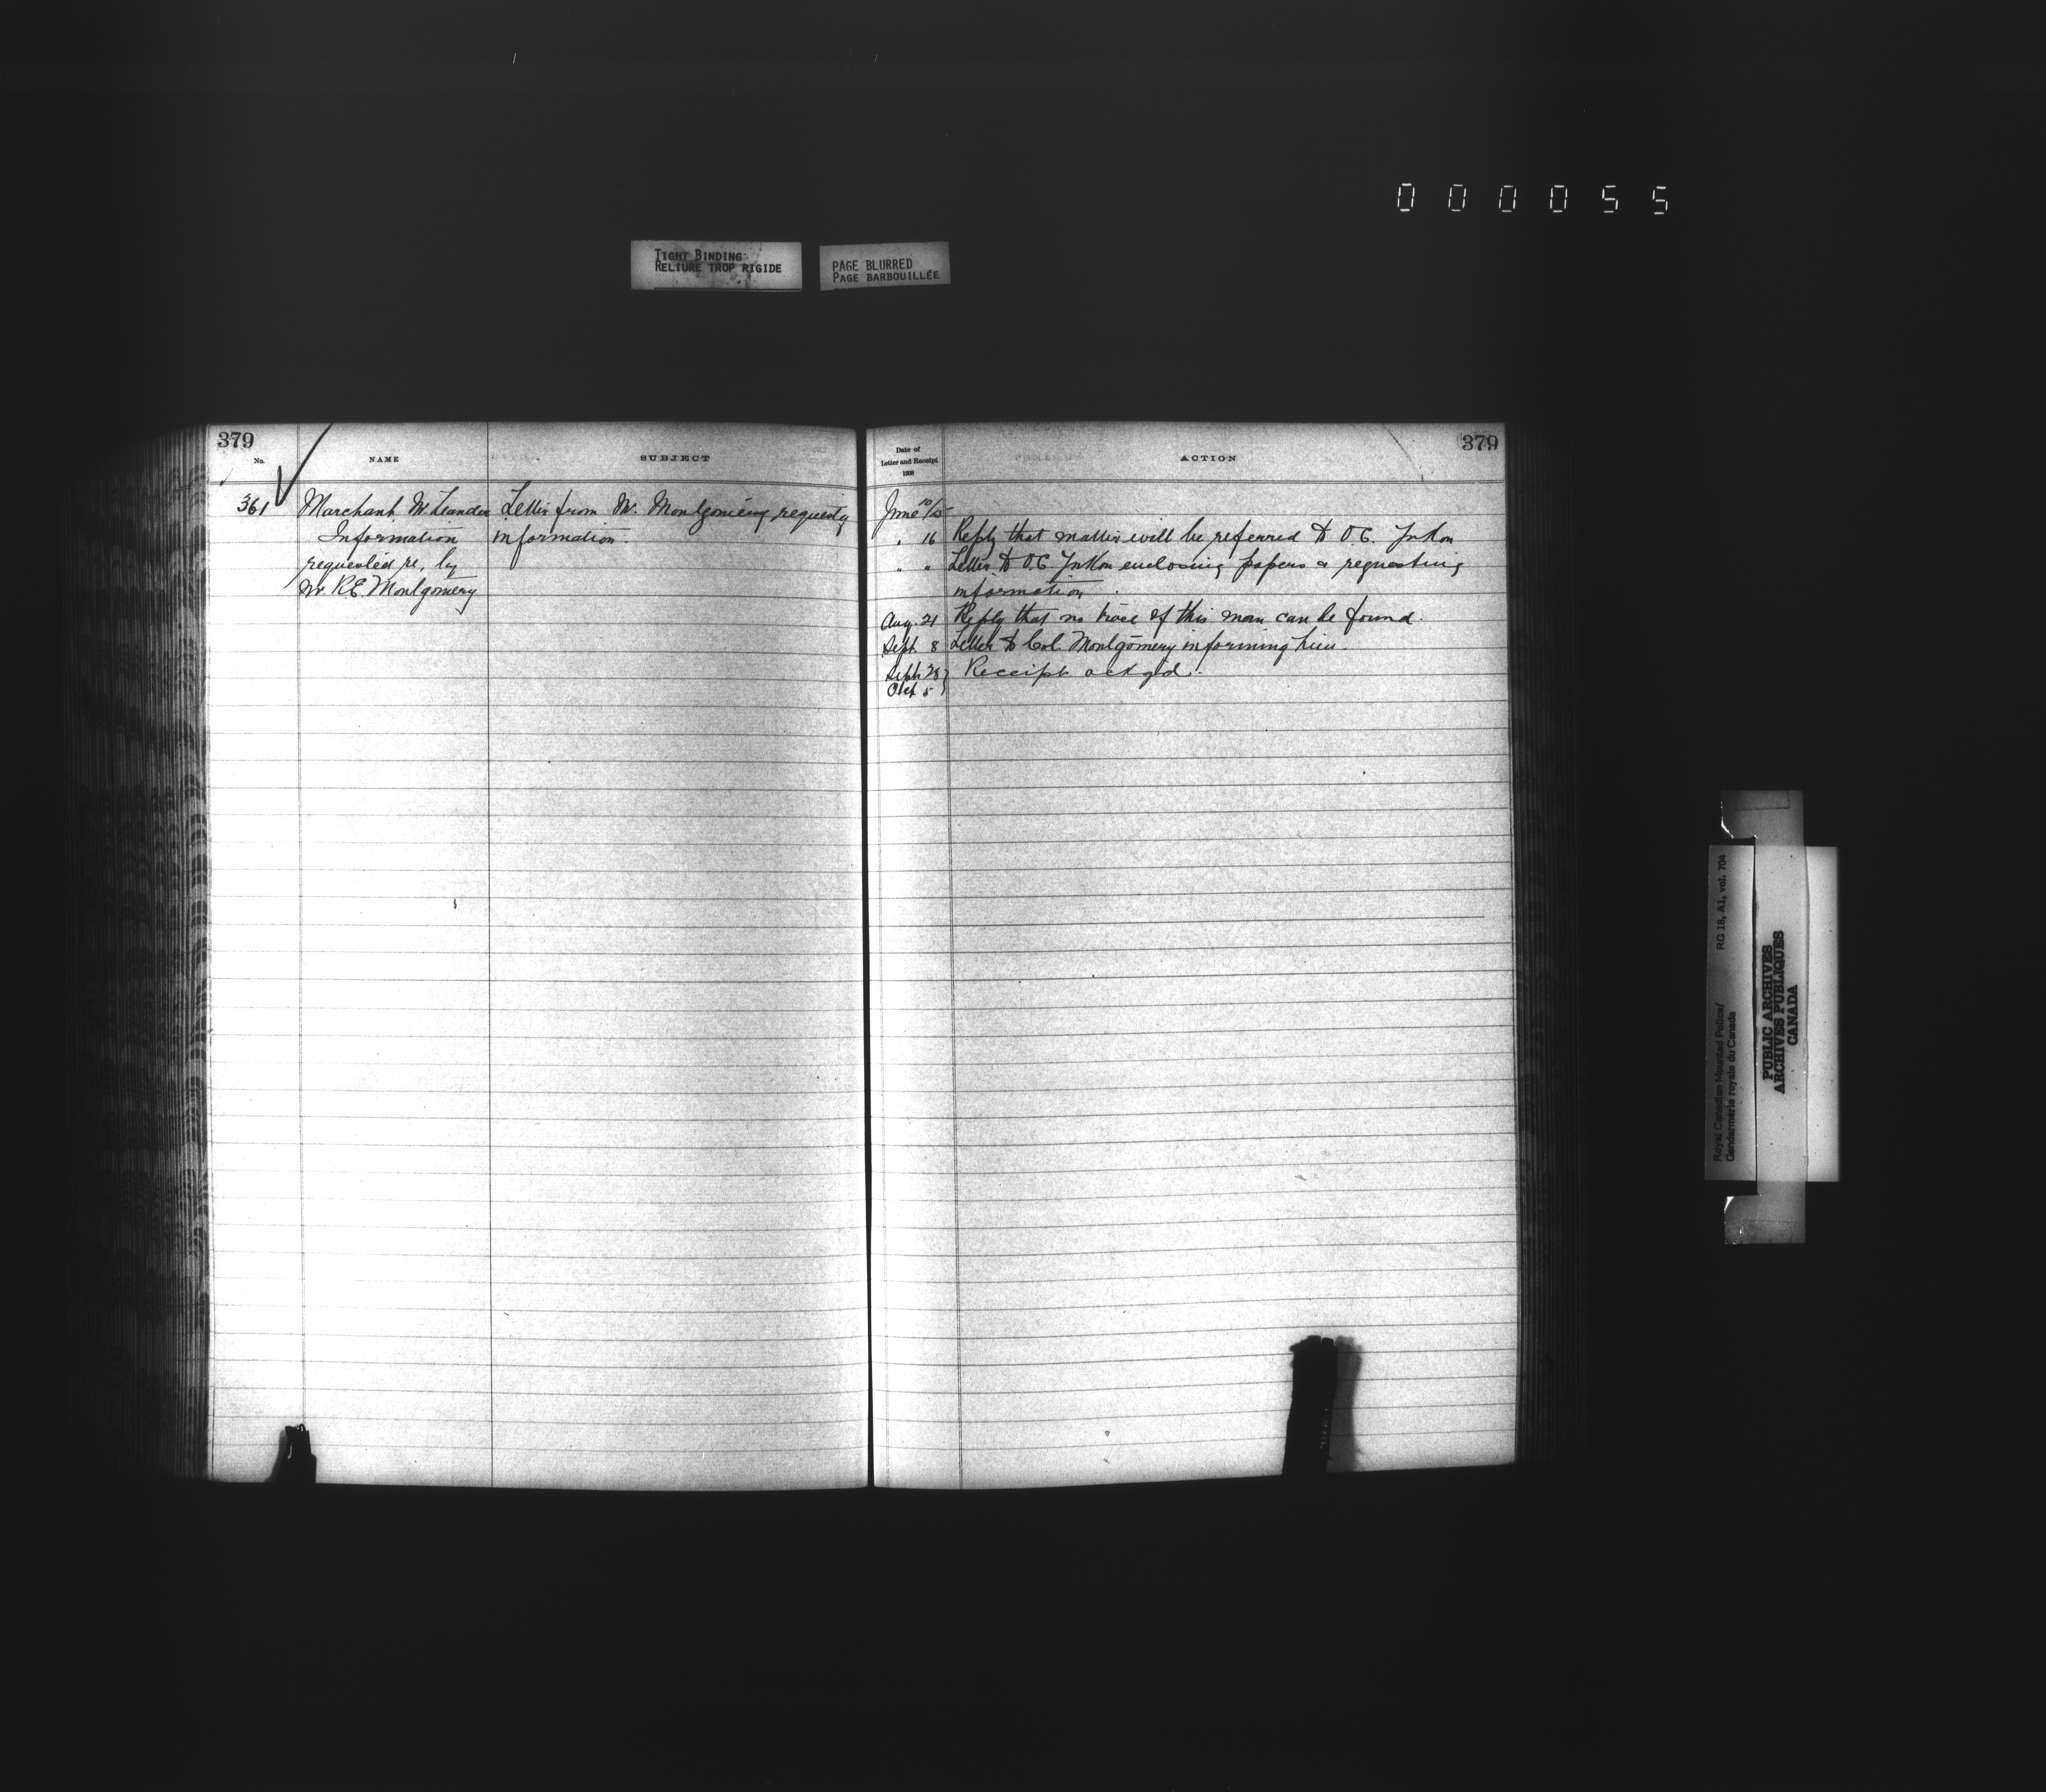 000055
TIGHT BINDING
RELIURE TROP RIGIDE
PAGE BLURRED
PAGE BARBOUILLÉE
379
No.
NAME
SUBJECT
361
Marchant M. Leander
Information
requested re, by
Mr. R.E. Montgomery
Letter from Mr. Montgomery requestg
information.
Date of
Letter and Receipt
1908
ACTION
379
June 10/15
" 16 Reply that matter will be referred to O.C. Yukon
" " Letter to O.C. Yukon enclosing papers & requesting
information.
Aug. 21 Reply that no trace of this man can be found.
Sept. 8 Letter to Col. Montgomery informing him.
Sept 28 } Receipt ackgd.
Oct 5 }
Royal Canadian Mounted Police/
Gendarmerie royale du Canada
RG 18, A1, vol. 704
PUBLIC ARCHIVES
ARCHIVES PUBLIQUES
CANADA